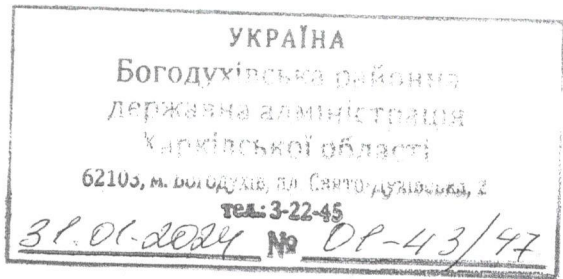 УКРАЇНА
Богодухівська районна
державна адміністрація
Харківської області
62103, м. Богодухів, пл. Свято-Духівська, 2
тел.: 3-22-45
31.01.2024 № 01-43/47